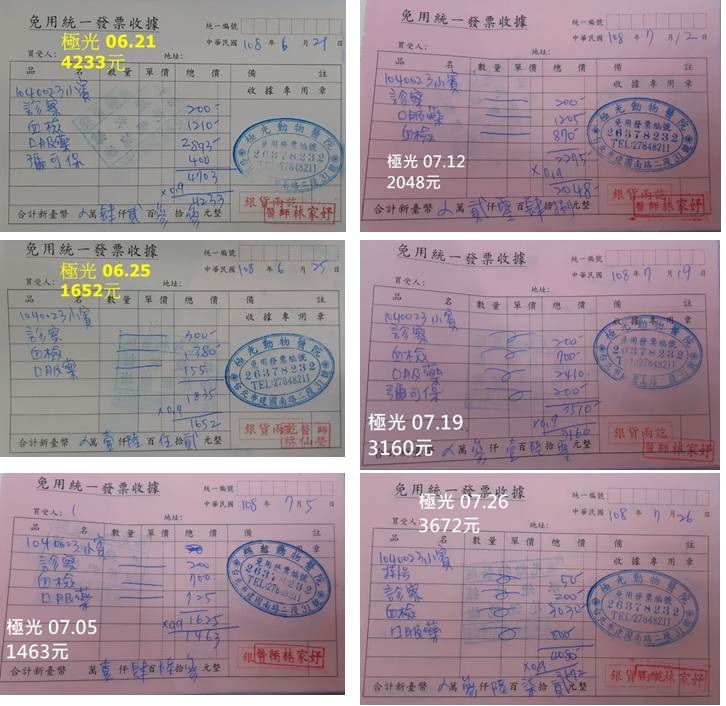 免用統一發票收據
統一編號
極光 06.21
4233元
中華民國 108 年 6 月 21 日
買受人:
地址:
品 名 數量 單價 總價 備 註
1040023小賓
收據專用章
診察 200-
血檢 1210-
口服藥 2893-
彌可保 400
4703
×0.9
4233
極光動物醫院
免用發票編號
26378232
TEL:27848211
台北市建國南路二段31號
銀貨兩訖
醫師林家妤
合計新臺幣 萬肆仟貳百參拾參元整
免用統一發票收據
統一編號
中華民國 108 年 7 月 12 日
買受人:
地址:
品 名 數量 單價 總價 備 註
1040023小賓
收據專用章
診察 200-
血檢 890-
口服藥 1205
極光 07.12
2048元
2295-
×0.9
2048-
極光動物醫院
免用發票編號
26378232
TEL:27848211
台北市建國南路二段31號
銀貨兩訖
醫師林家妤
合計新臺幣 萬貳仟零百肆拾捌元整
免用統一發票收據
統一編號
極光 06.25
1652元
中華民國 108 年 6 月 25 日
買受人:
地址:
品 名 數量 單價 總價 備 註
1040023小賓
收據專用章
診察 300-
血檢 1380-
口服藥 155
1835
×0.9
1652
極光動物醫院
免用發票編號
26378232
TEL:27848211
台北市建國南路二段31號
銀貨兩訖
合計新臺幣 萬壹仟陸百伍拾貳元整
免用統一發票收據
統一編號
中華民國 108 年 7 月 19 日
買受人:
地址:
品 名 數量 單價 總價 備 註
1040023小賓
收據專用章
診察 200-
血檢 700-
口服藥 2410-
彌可保 200-
極光 07.19
3160元
3510-
×0.9
3160
免用發票編號
26378232
銀貨兩訖
醫師林家妤
合計新臺幣 萬參仟壹百陸拾零元整
免用統一發票收據
統一編號
中華民國 108 年 7 月 5 日
買受人:
地址:
品 名 數量 單價 總價 備 註
1040023小賓
診察 200
血檢 700
口服藥 725
極光 07.05
1463元
×0.9 1625
1463
免用發票編號
台北市建國南路二段31號
醫師林家妤
合計新臺幣 萬壹仟肆百陸拾參元整
免用統一發票收據
統一編號
極光 07.26
3672元
中華民國 108 年 7 月 26 日
買受人:
地址:
品 名 數量 單價 總價 備 註
1040023小賓
收據專用章
掛號 50-
診察 200-
血檢 3030-
口服藥 800-
4080-
×0.9
3672
極光動物醫院
免用發票編號
26378232
TEL:27848211
台北市建國南路二段31號
合計新臺幣 萬參仟陸百柒拾貳元整